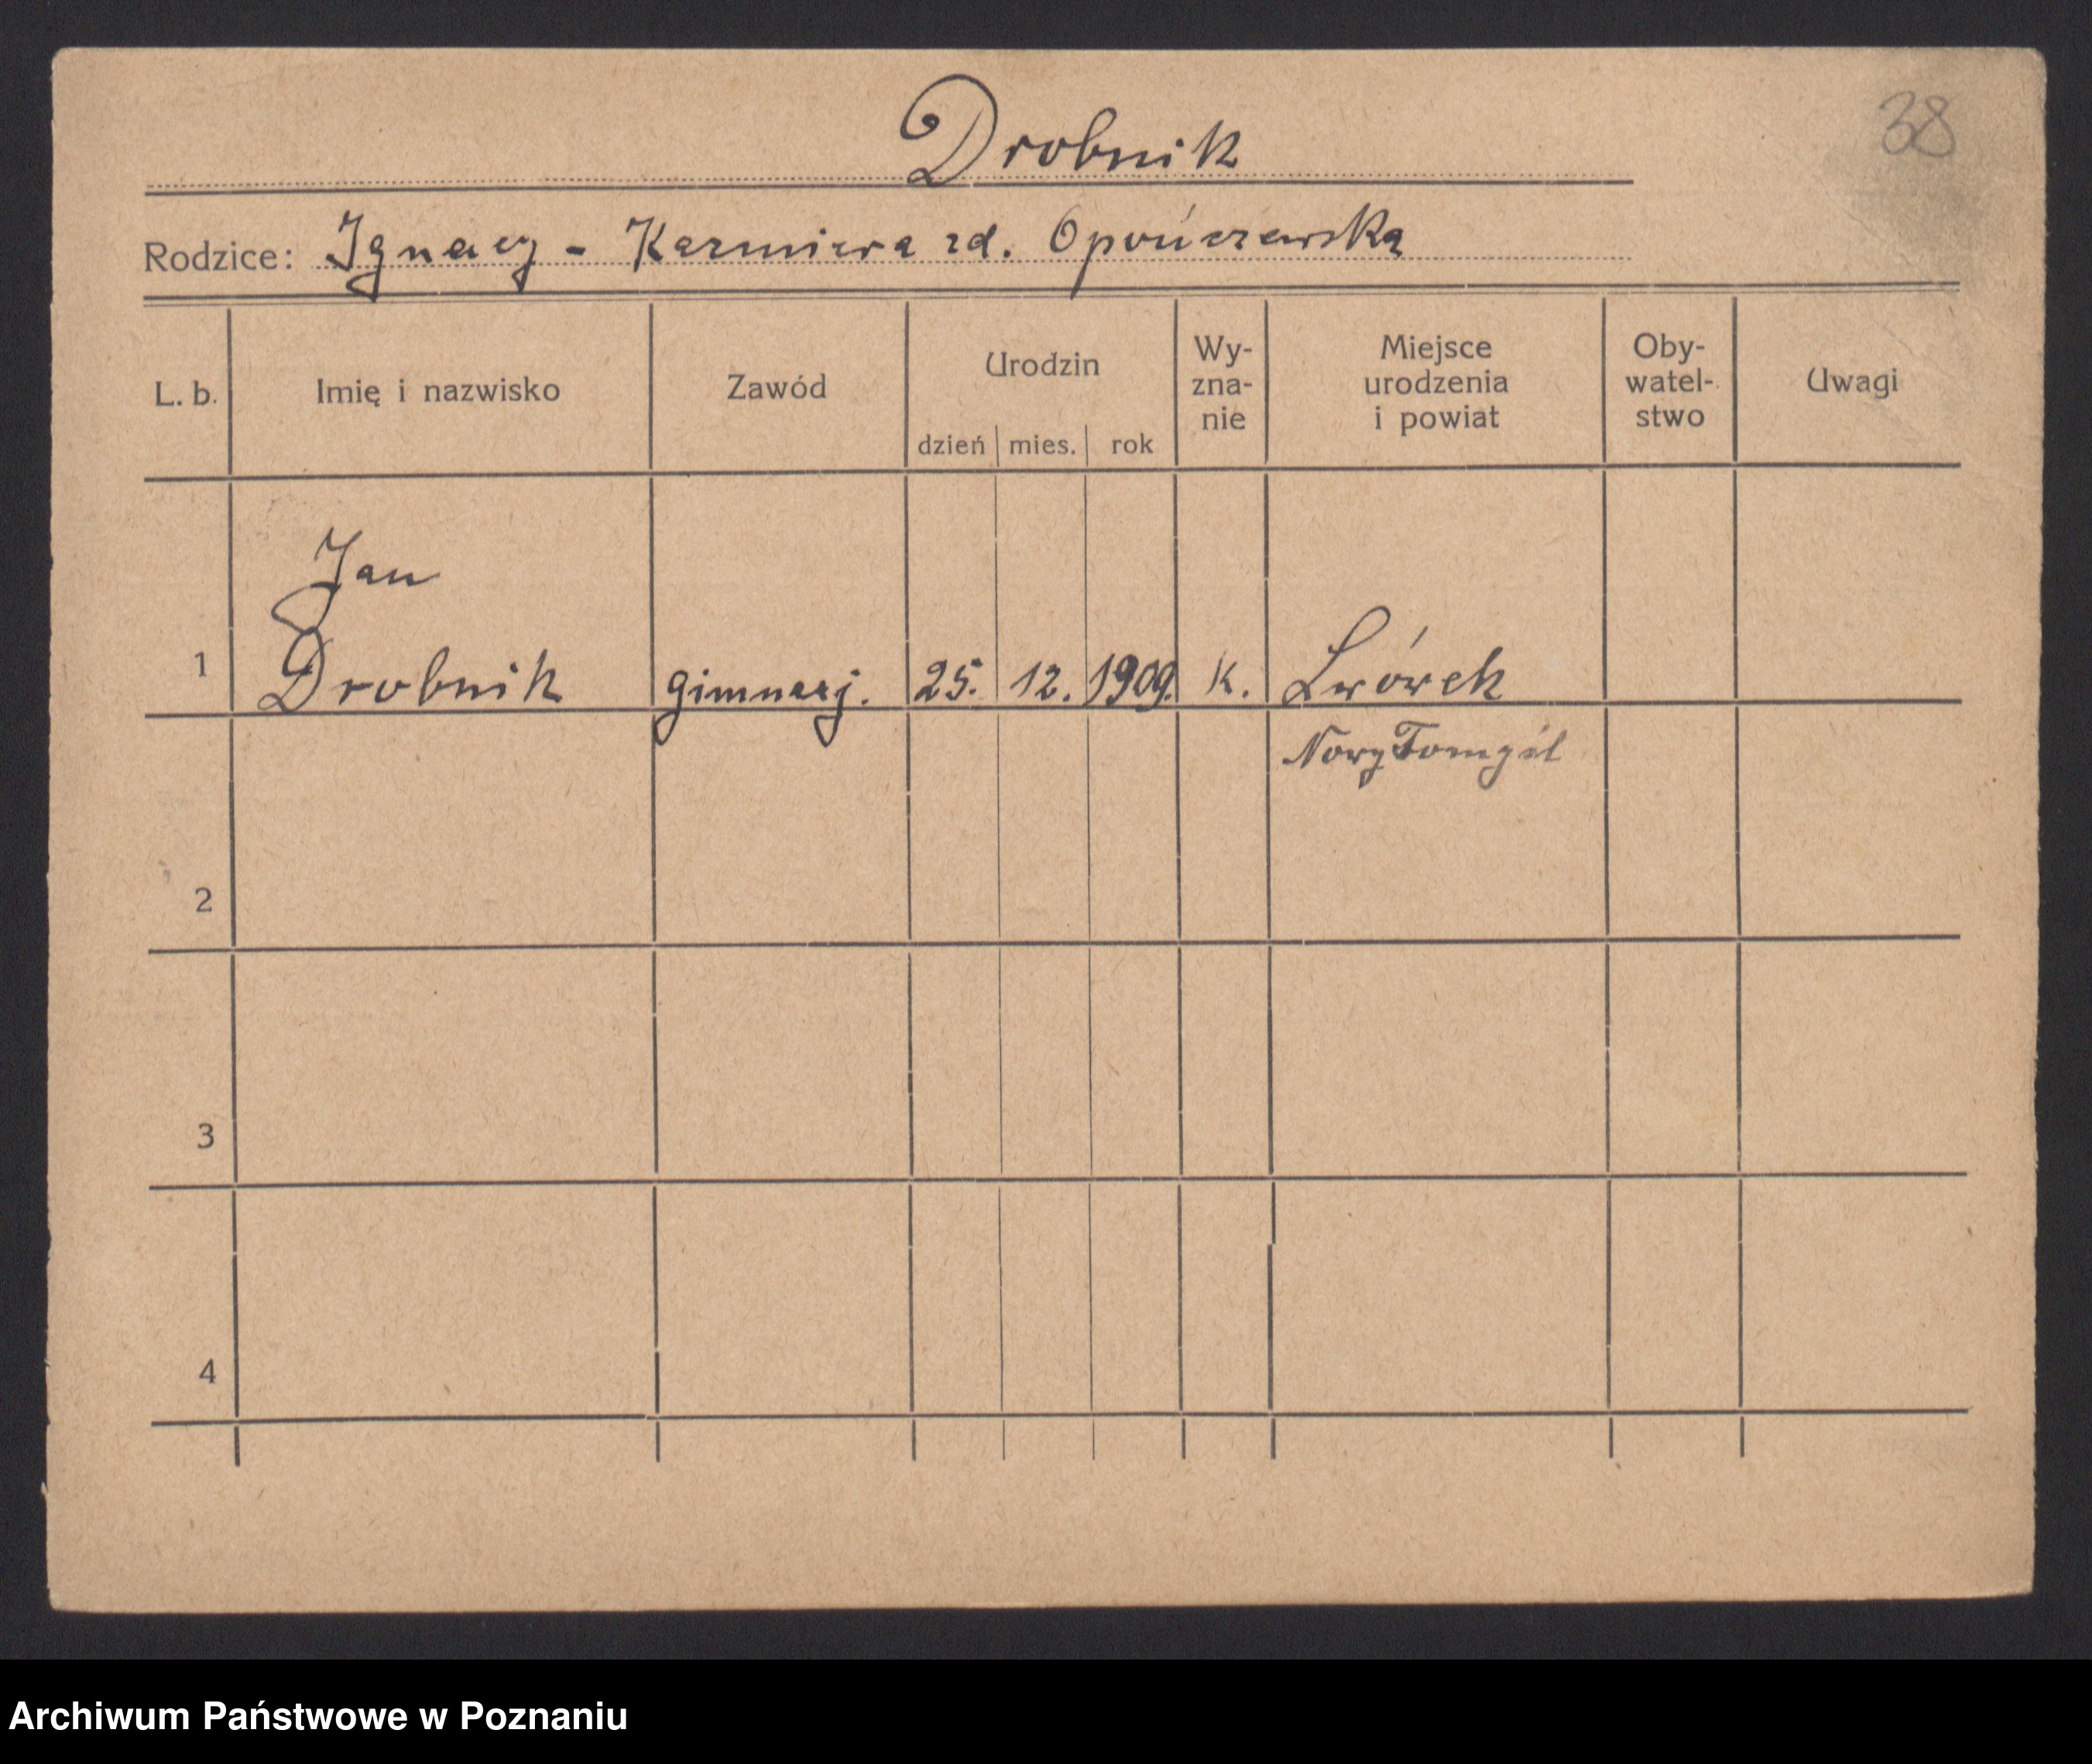 38
Drobnik
Rodzice: Ignacy - Kazmiera zd. Opończewska
L. b. Imię i nazwisko Zawód Urodzin Wy- zna- nie Miejsce urodzenia i powiat Oby- watel- stwo Uwagi
dzień mies. rok
Jan
1 Drobnik gimnazj. 25. 12. 1909. K. Lwówek
Nowy Tomyśl
2
3
4
Archiwum Państwowe w Poznaniu